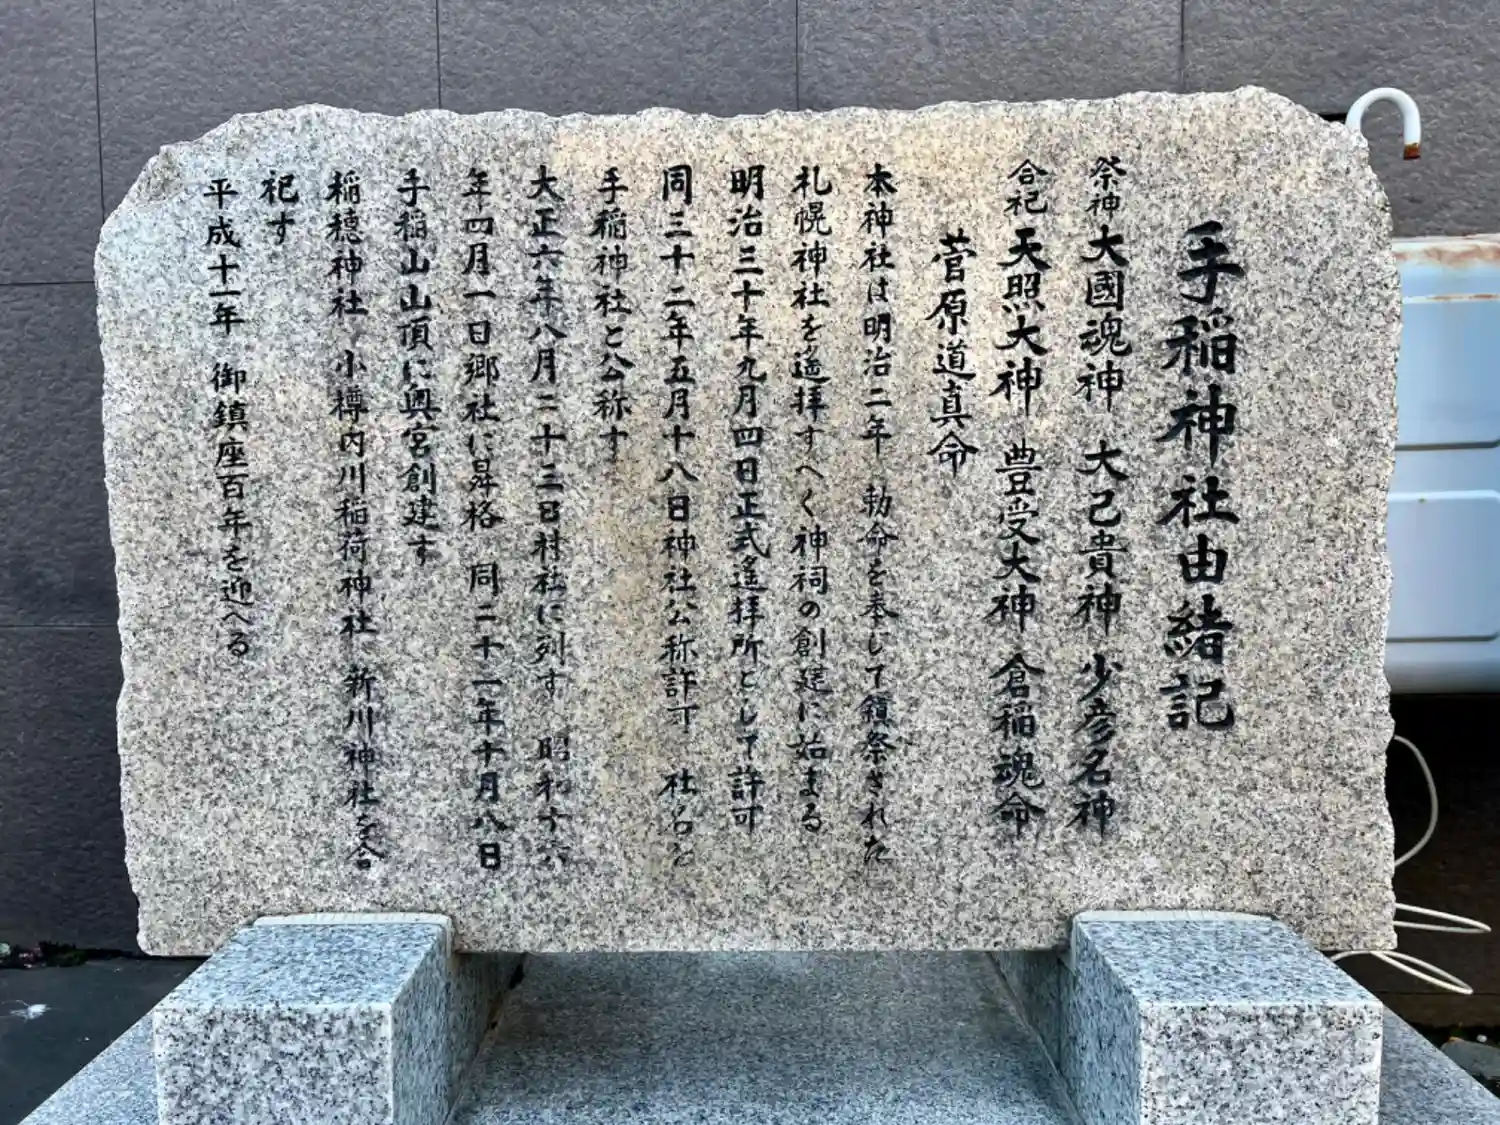 手稲神社由緒記
祭神 大國魂神 大己貴神 少彦名神
合祀 天照大神 豊受大神 倉稲魂命
菅原道真命
本神社は明治二年 勅命を奉じて鎮祭された
札幌神社を遙拝すへく神祠の創建に始まる
明治三十年九月四日正式遙拝所として許可
同三十二年五月十八日神社公称許可 社名を
手稲神社と公称す
大正六年八月二十三日村社に列す 昭和十六
年四月一日郷社に昇格 同二十一年十月八日
手稲山山頂に奥宮創建す
稲穂神社 小樽内川稲荷神社 新川神社を合
祀す
平成十一年 御鎮座百年を迎へる